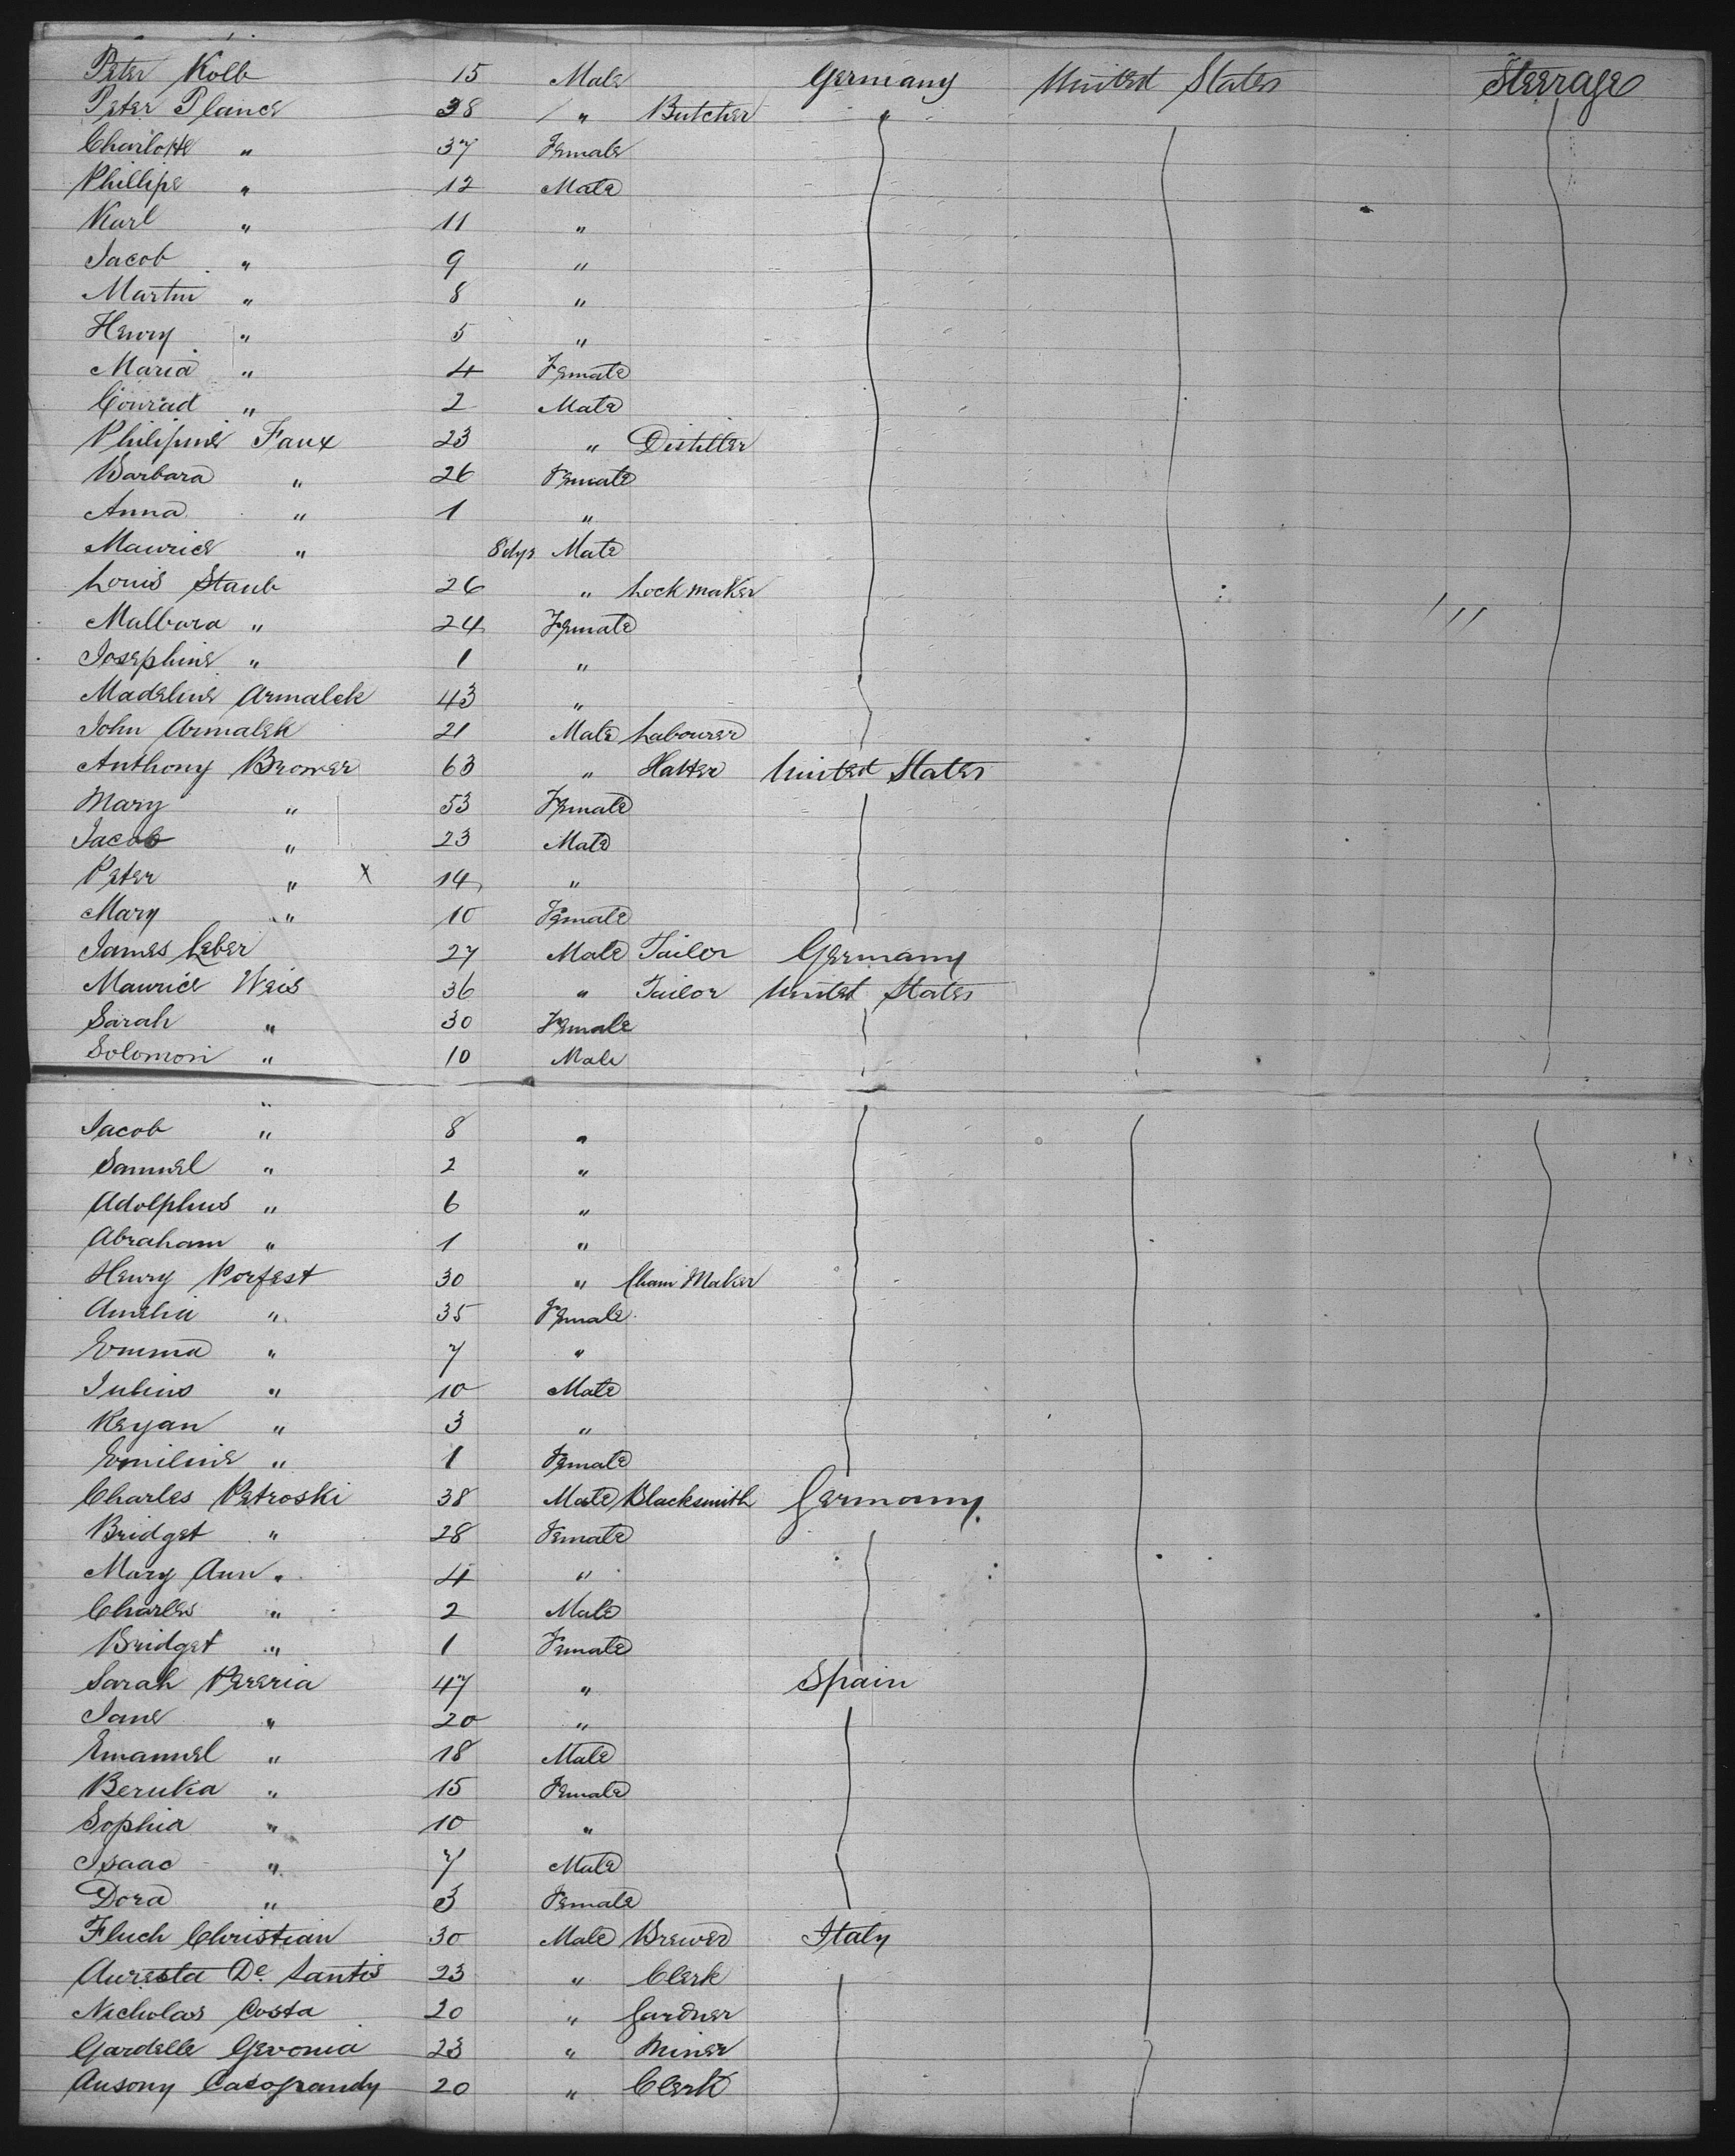 Peter Kolb 15 Male Germany United States Steerage
Peter Plance 38 " Butcher "
Charlotte " 37 Female
Phillipe " 12 Male
Karl " 11 "
Jacob " 9 "
Martin " 8 "
Henry " 5 "
Maria " 4 Female
Conrad " 2 Male
Philipine Faux 23 " Distiller
Barbara " 26 Female
Anna " 1 "
Maurice " 8 dys Male
Louis Staub 26 " Lock maker
Malbara " 24 Female
Josephine " 1 "
Madeline Armalek 43 "
John Armalek 21 Male Labourer
Anthony Brower 63 " Hatter United States
Mary " 53 Female
Jacob " 23 Male
Peter " X 14 "
Mary " 10 Female
James Leber 27 Male Tailor Germany
Maurice Weis 36 " Tailor United States
Sarah " 30 Female
Solomon " 10 Male
"
Jacob " 8 "
Samuel " 2 "
Adolphus " 6 "
Abraham " 1 "
Henry Porfest 30 " Chain Maker
Amelia " 35 Female
Emma " 7 "
Julius " 10 Male
Reyan " 3 "
Emiline " 1 Female
Charles Petroski 38 Male Blacksmith Germany
Bridget " 28 Female
Mary Ann " 4 "
Charles " 2 Male
Bridget " 1 Female
Sarah Pereria 47 " Spain
Jane " 20 "
Emanuel " 18 Male
Beruka " 15 Female
Sophia " 10 "
Isaac " 7 Male
Dora " 3 Female
Fluch Christian 30 Male Brewer Italy
Auresta De Santis 23 " Clerk
Nicholas Costa 20 " Gardner
Gardelle Gevonia 23 " Miner
Ausony Casograndy 20 " Clerk